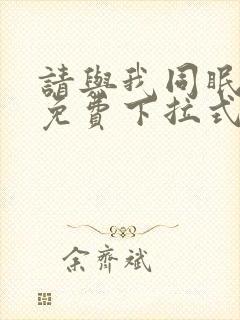 請與我同眠
免費下拉式
余齊斌